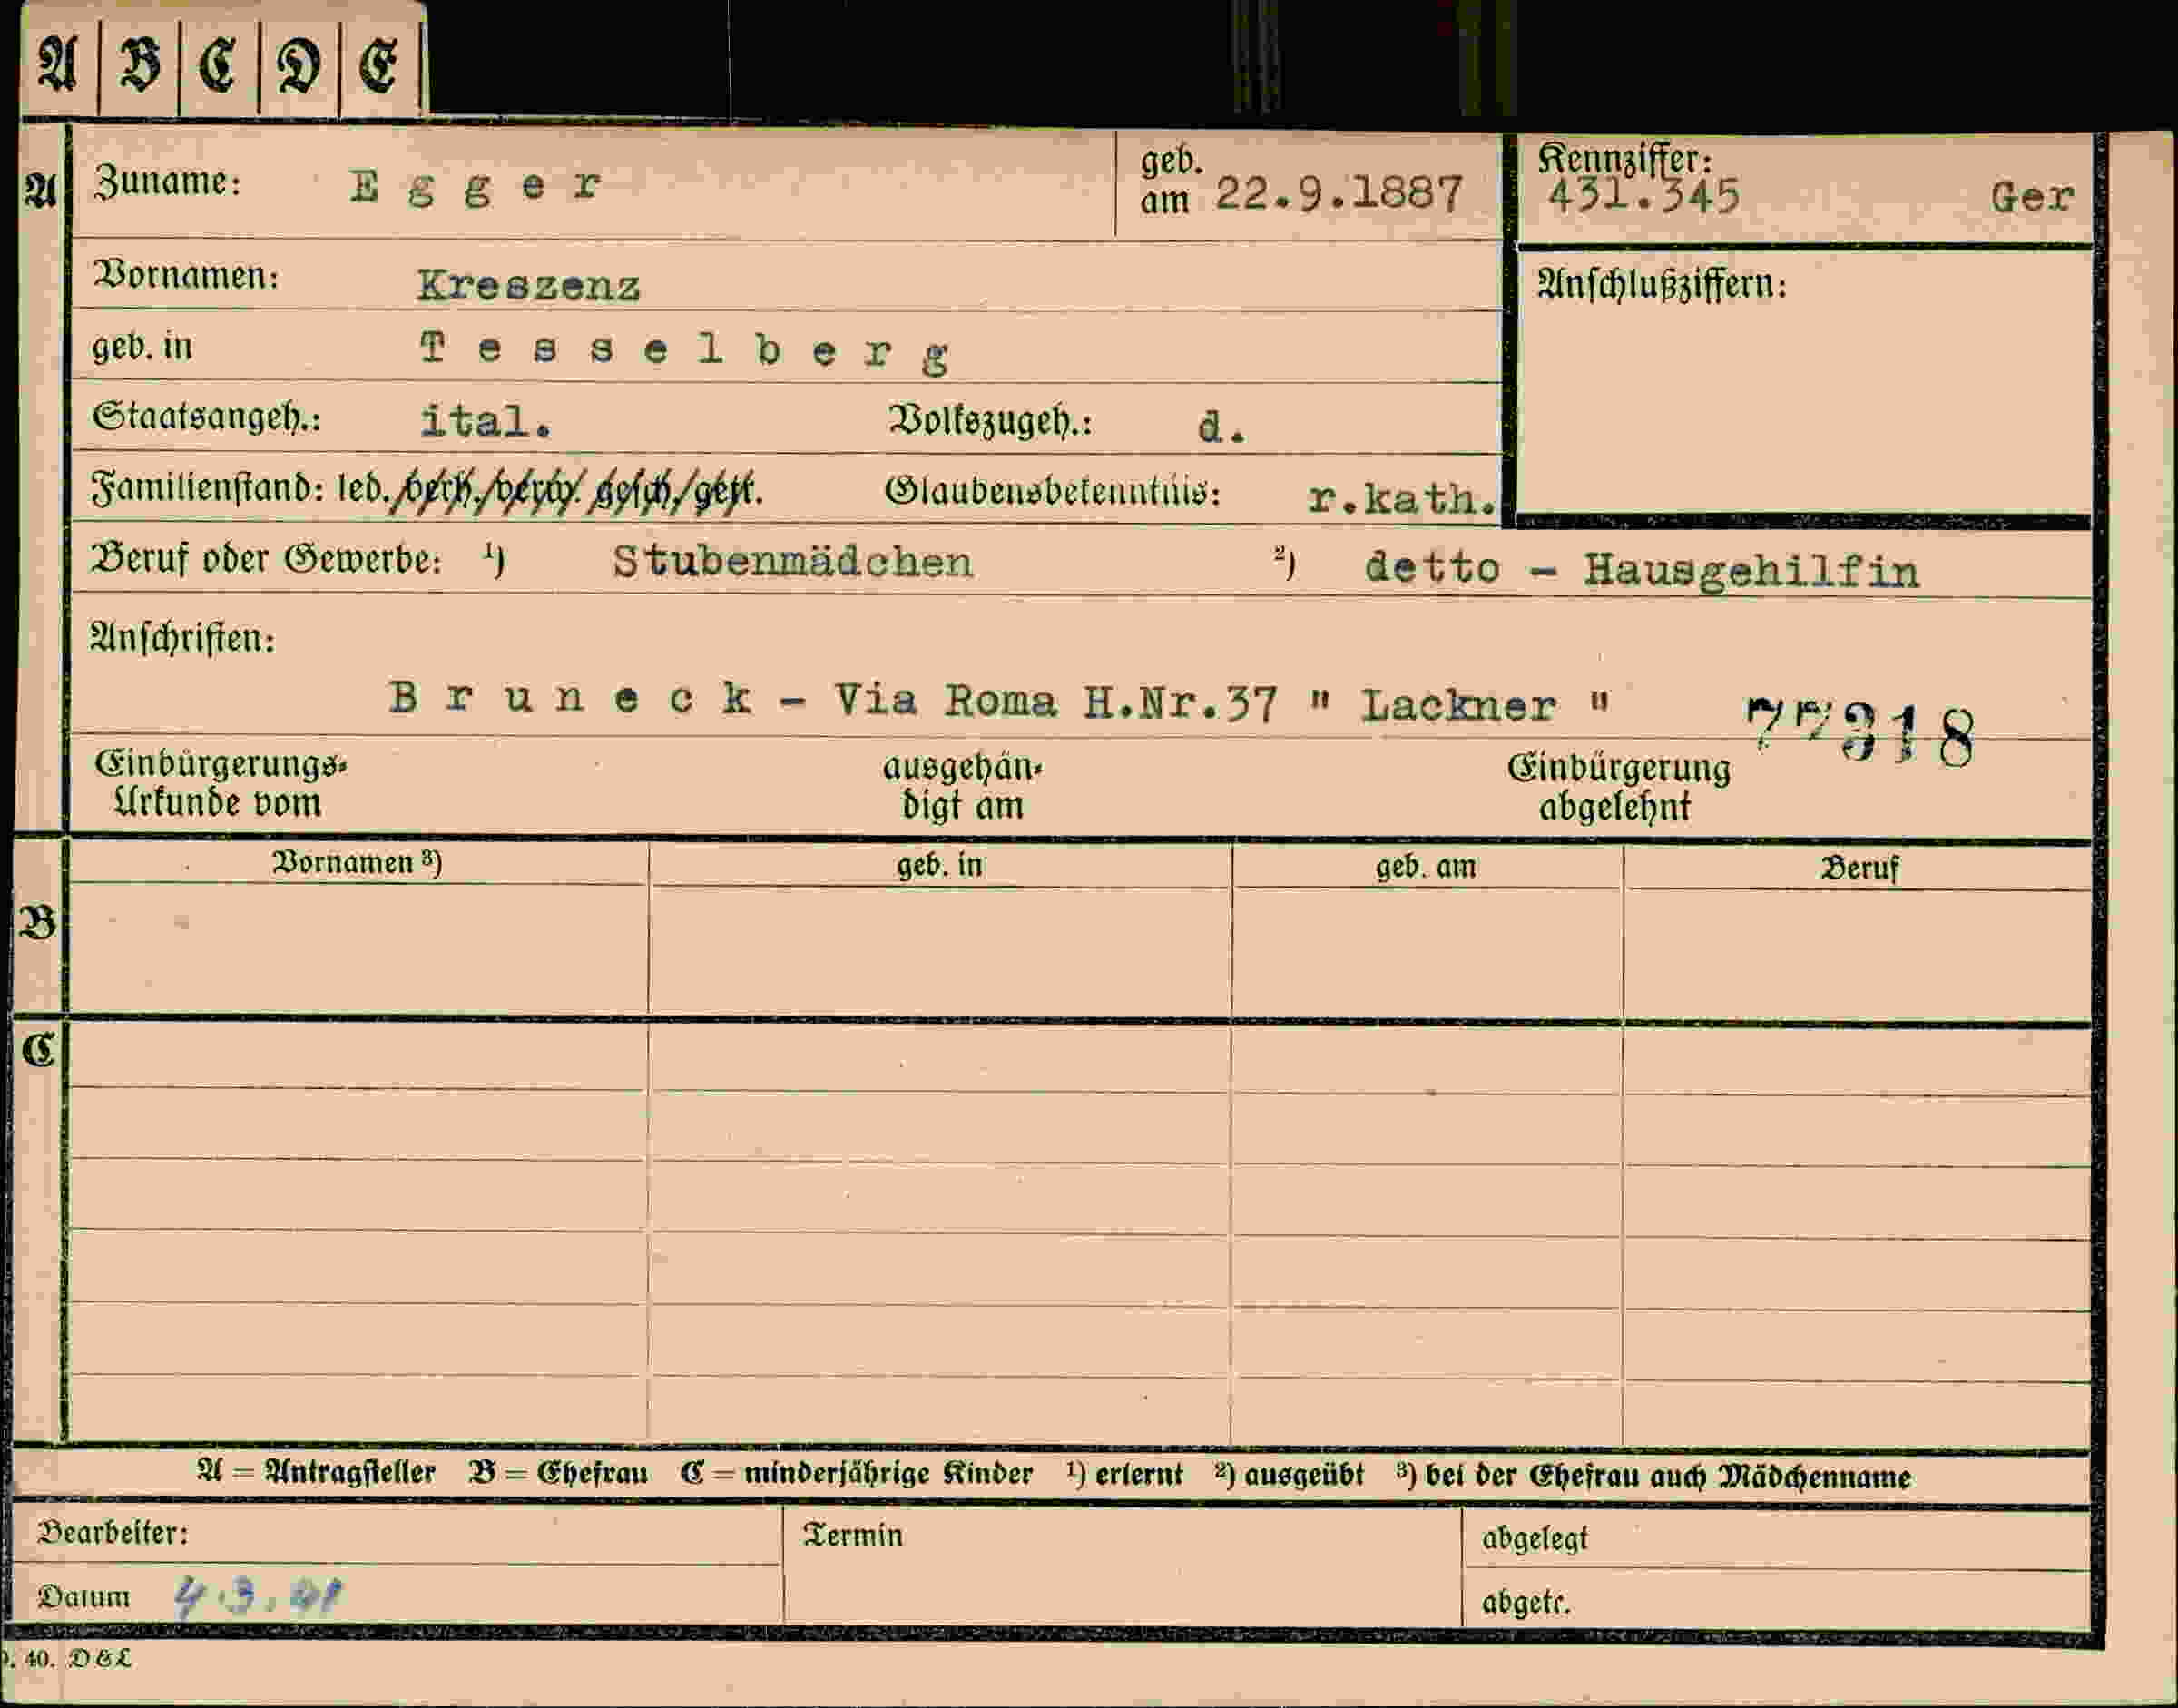 A B C D E
A Zuname: Egger geb. am 22.9.1887 Kennziffer: 431.345 Ger
Vornamen: Kreszenz Anschlußziffern:
geb. in Tesselberg
Staatsangeh.: ital. Volkszugeh.: d.
Familienstand: led./verh./verw./gesch./getr. Glaubensbekenntnis: r.kath.
Beruf oder Gewerbe: 1) Stubenmädchen 2) detto - Hausgehilfin
Anschriften:
Bruneck - Via Roma H.Nr.37 " Lackner " 77318
Einbürgerungs-Urkunde vom ausgehändigt am Einbürgerung abgelehnt
Vornamen 3) geb. in geb. am Beruf
B
C
A = Antragsteller B = Ehefrau C = minderjährige Kinder 1) erlernt 2) ausgeübt 3) bei der Ehefrau auch Mädchenname
Bearbeiter: Termin abgelegt
Datum 4.3.41 abgetr.
40. D&L